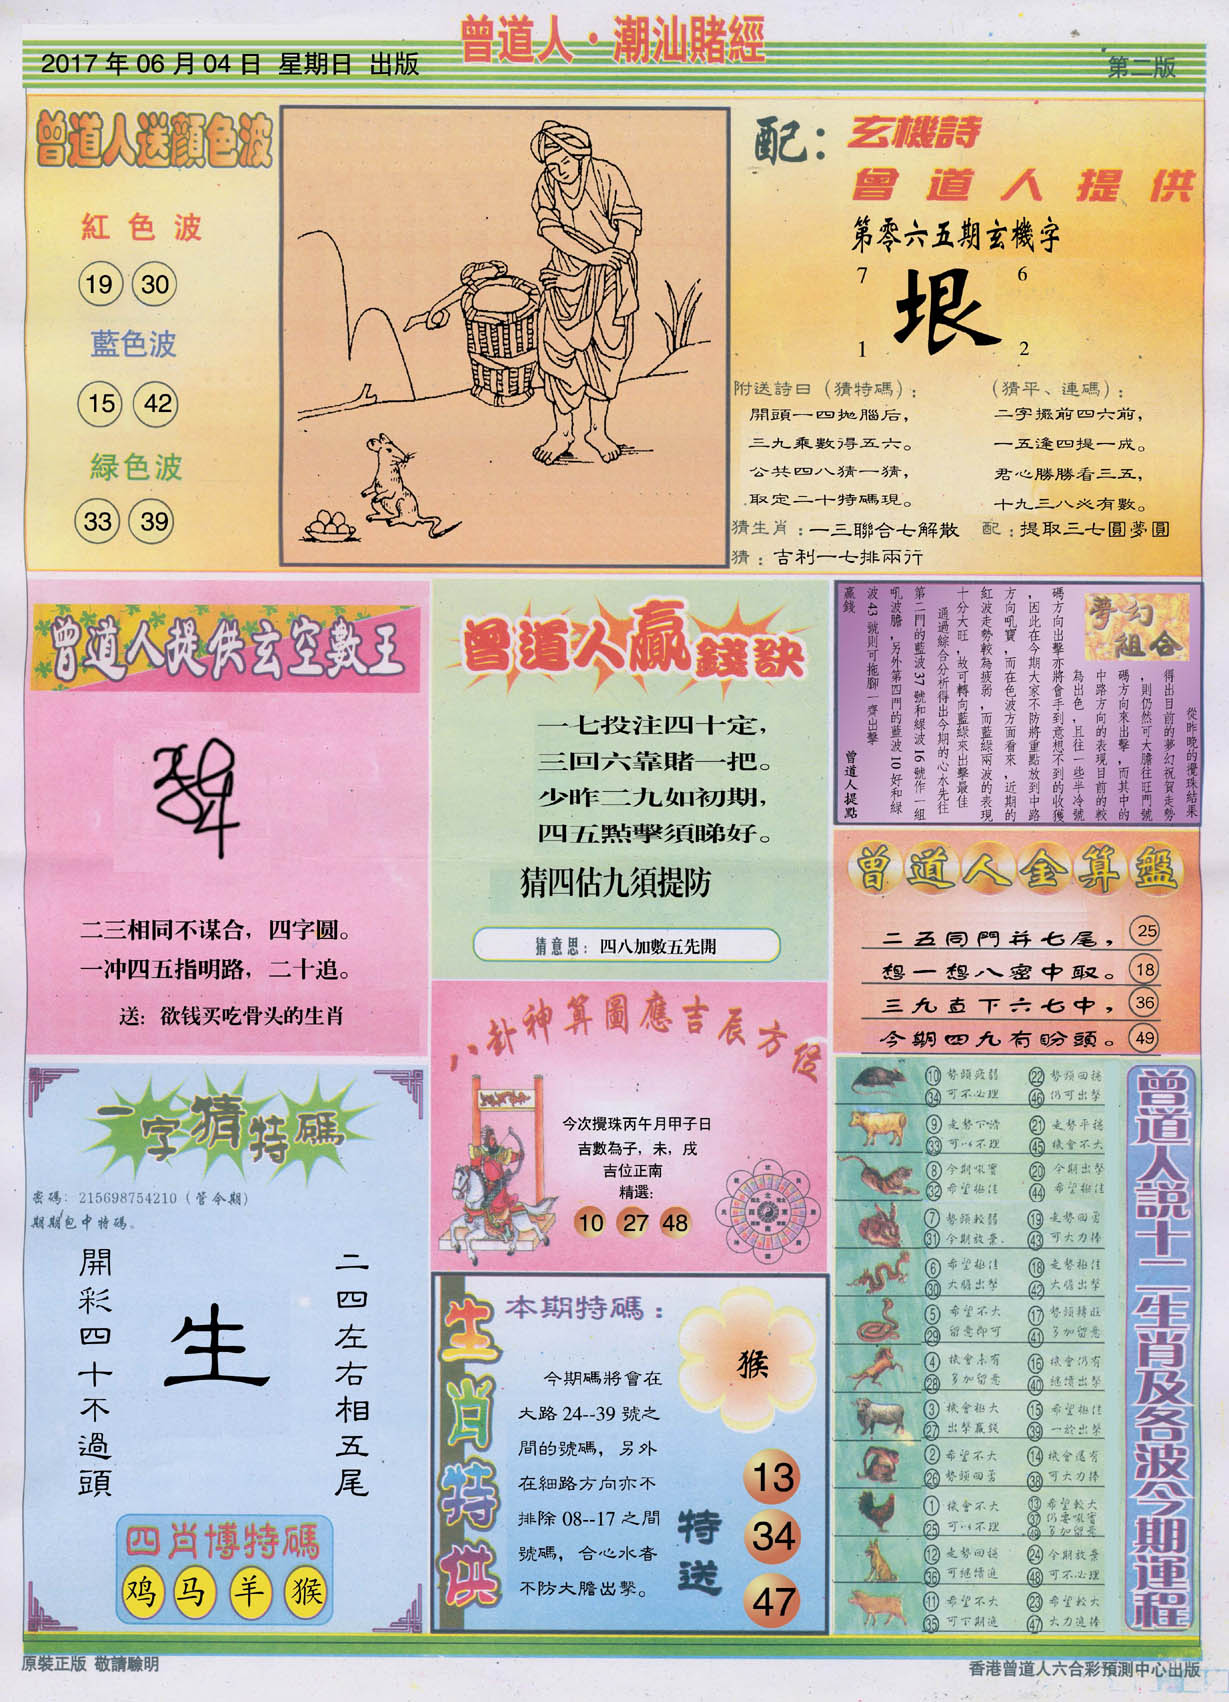 曾道人·潮汕賭經
2017 年 06 月 04 日 星期日 出版
第二版
曾道人送顏色波
紅色波
19 30
藍色波
15 42
緑色波
33 39
配：玄機詩
曾道人提供
第零六五期玄機字
7 6
垠
1 2
附送詩曰（猜特碼）：
開頭一四拋腦后，
三九乘數得五六。
公共四八猜一猜，
取定二十特碼現。
（猜平、連碼）：
二字攞前四六前，
一五逢四提一成。
君心勝勝看三五，
十九三八必有數。
猜生肖：一三聯合七解散
配：提取三七圓夢圓
猜：吉利一七排兩行
曾道人提供玄空數王
二三相同不谋合，四字圆。
一冲四五指明路，二十追。
送：欲钱买吃骨头的生肖
曾道人贏錢訣
一七投注四十定，
三回六靠賭一把。
少昨二九如初期，
四五點擊須睇好。
猜四估九須提防
猜意思：四八加數五先開
夢幻組合
從昨晚的攪珠結果
得出目前的夢幻祝賀走勢
，則仍然可大膽往旺門號
碼方向來出擊，而其中的
中路方向的表現目前的較
為出色，且往一些半冷號
碼方向出擊亦將會手到意想不到的收獲
，因此在今期大家不防將重點放到中路
方向吼寶，而在色波方面看來，近期的
紅波走勢較為疲弱，而藍綠兩波的表現
十分大旺，故可轉向藍綠來出擊最佳
通過綜合分析得出今期的心水先往
第二門的藍波 37 號和綠波 16 號作一組
吼波膽，另外第四門的藍波 10 好和綠
波 43 號則可拖腳一齊出擊
贏錢
曾道人提點
曾道人金算盤
二五同門并七尾， 25
想一想八密中取。 18
三九直下六七中， 36
今期四九有盼頭。 49
八卦神算圖應吉辰方位
今次攪珠丙午月甲子日
吉數為子，未，戌
吉位正南
精選：
10 27 48
一字猜特碼
密碼：215698754210（管令期）
期期包中特碼。
開彩四十不過頭
生
二四左右相五尾
四肖博特碼
鸡 马 羊 猴
生肖特供
本期特碼：
猴
今期碼將會在
大路 24--39 號之
間的號碼，另外
在細路方向亦不
排除 08--17 之間
號碼，合心水者
不防大膽出擊。
特送
13
34
47
曾道人説十二生肖及各波今期運程
10 勢頭疲弱 22 勢頭回穩
34 可不必理 46 仍可出擊
9 走勢下清 21 走勢平穩
33 可以不理 45 機會不大
8 今期吼寶 20 今期出擊
32 希望極佳 44 希望極佳
7 勢頭較弱 19 走勢回勇
31 今期放棄. 43 可大力捧
6 希望極佳 18 走勢極佳
30 大膽出擊 42 大膽出擊
5 希望不大 17 勢頭轉旺
29 留意即可 41 多加留意
4 機會未有 16 機會仍有
28 多加留意 40 繼續出擊
3 機會極大 15 希望極佳
27 出擊贏錢 39 一於出擊
2 希望不大 14 機會還有
26 勢頭回勇 38 可大力捧
1 機會不大 13 希望較大
25 可以不理 37 仍要吼寶
49 多加留意
12 走勢回穩 24 今期放棄
36 可繼續追 48 可不必理
11 希望不大 23 希望較大
35 可下期追 47 大力追捧
原裝正版 敬請驗明
香港曾道人六合彩預測中心出版